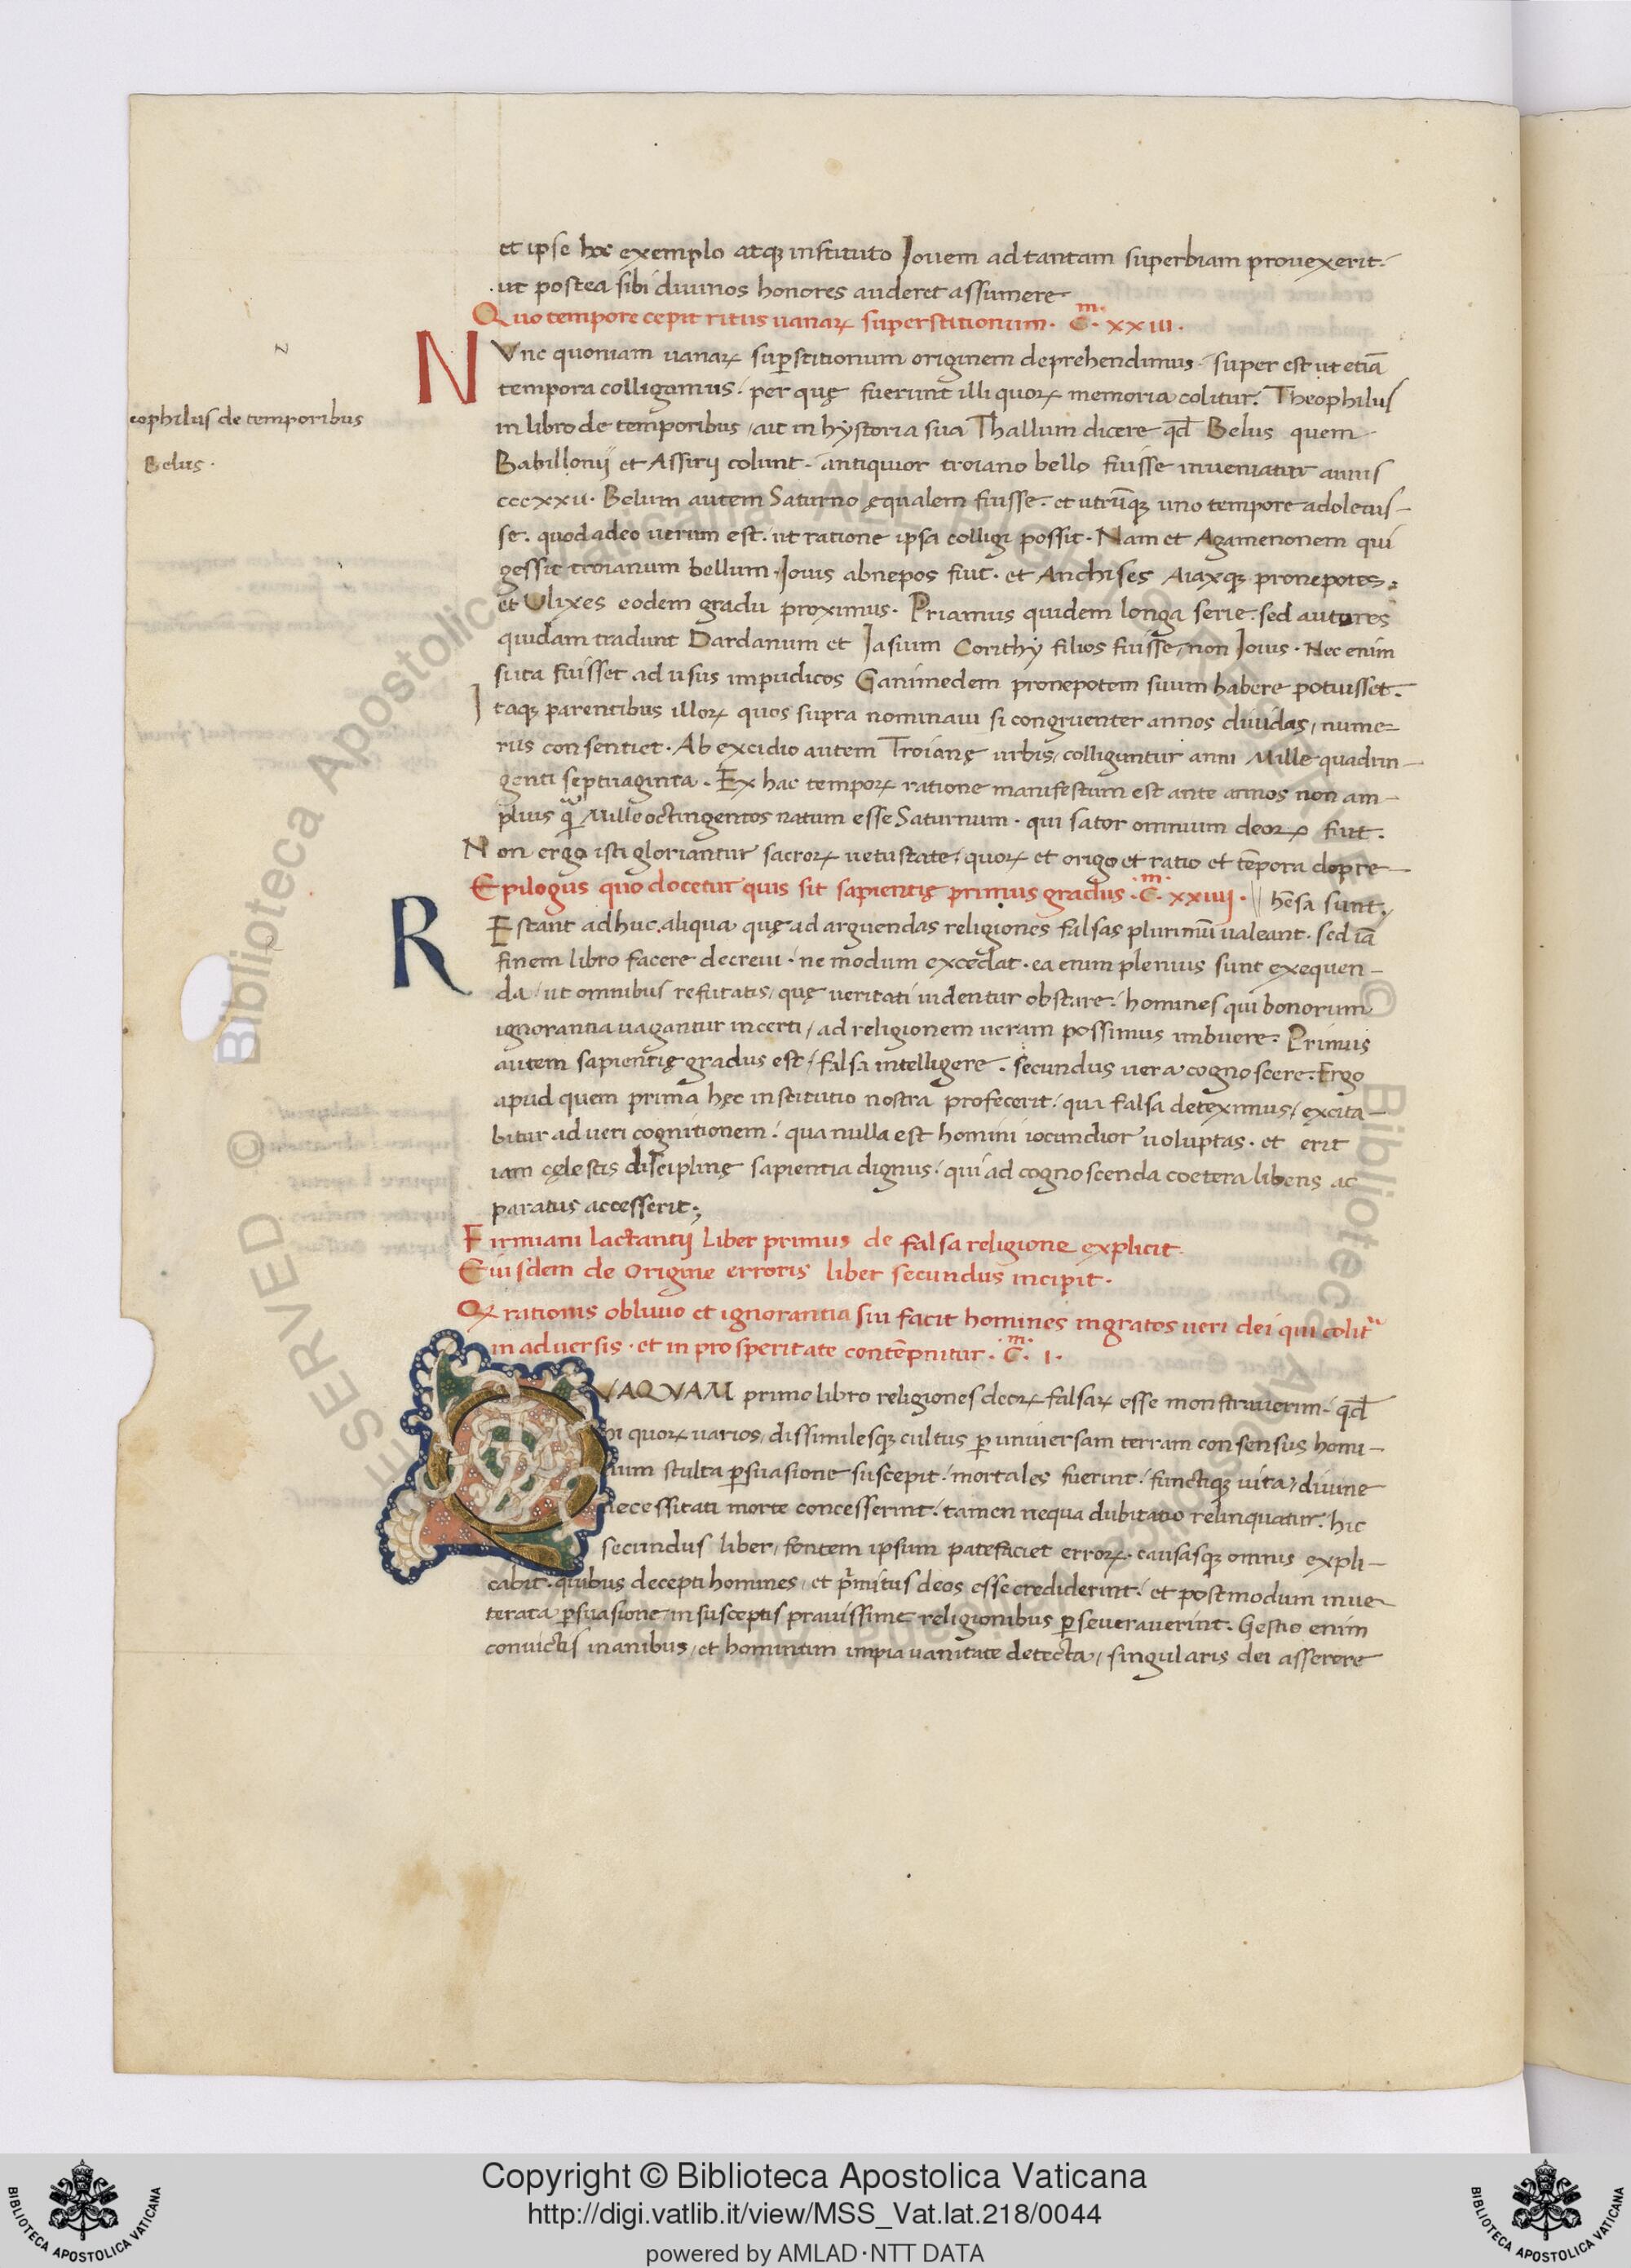 et ipse hoc exemplo atqꝫ instituto Iovem ad tantam superbiam provexerit.
ut postea sibi divinos honores auderet assumere
Quo tempore cepit ritus vanaꝝ superstitionum. C.m XXIII.
NVnc quoniam vanaꝝ suꝑstitionum originem deprehendimus. super est ut etiā
tempora colligamus. per quę fuerunt illi quoꝝ memoria colitur. Theophilus
eophilus de temporibus
in libro de temporibus / ait in hystoria sua Thallum dicere qđ Belus quem
Belus.
Babillonij et Assirij colunt. antiquior troiano bello fuisse inveniatur annis
cccxxii. Belum autem Saturno ęqualem fuisse. et utrūqꝫ uno tempore adoletus-
se. quod adeo verum est. ut ratione ipsa colligi possit. Nam et Agamenonem qui
gessit troianum bellum. Iovis abnepos fuit. et Anchises Aiaxqꝫ pronepotes.
et Ulixes eodem gradu proximus. Priamus quidem longa serie. sed autores
quidam tradunt Dardanum et Iasium Corithy filios fuisse / non Iovis. Nec enim
si ita fuisset ad usus impudicos Ganimedem pronepotem suum habere potuisset.
Itaqꝫ parentibus illoꝝ quos supra nominavi si congruenter annos dividas / nume=
rus consentiet. Ab excidio autem Troianę urbis / colliguntur anni Mille quadrin-
genti septuaginta. Ex hac tempoꝝ ratione manifestum est ante annos non am-
plius qᷓ Mille octingentos natum esse Saturnum. qui sator omnium deoꝝ fuit.
Non ergo isti gloriantur sacroꝝ vetustate / quoꝝ et origo et ratio et tēpora depre-
Epilogus quo docetur quis sit sapientię primus gradus. C.m XXIIII. || hēsa sunt.
REstant adhuc aliqua quę ad arguendas religiones falsas plurimū valeant. sed iā
finem libro facere decrevi. ne modum excedat. ea enim plenius sunt exequen-
da / ut omnibus refutatis / quę veritati videntur obstare. homines qui bonorum
ignorantia vagantur incerti / ad religionem veram possimus imbuere. Primus
autem sapientię gradus est / falsa intelligere. secundus vera cognoscere. Ergo
apud quem prima hęc institutio nostra profecerit. qua falsa deteximus / excita-
bitur ad veri cognitionem. qua nulla est homini iocundior voluptas. et erit
iam cęlestis disciplinę sapientia dignus. qui ad cognoscenda coetera libens ac
paratus accesserit;
Firmiani lactantij Liber primus de falsa religione explicit.
Eiusdem de Origine erroris liber secundus incipit.
Qꝝ rationis oblivio et ignorantia sui facit homines ingratos veri dei qui colitᷣ
in adversis. et in prosperitate contēpnitur. C.m I.
QVAQVAM primo libro religiones deoꝝ falsaꝝ esse monstraverim. qđ
ii quoꝝ varios / dissimilesqꝫ cultus ꝑ universam terram consensus homi-
num stulta ꝑsuasione suscepit. mortales fuerint. functiqꝫ vita / divine
necessitati morte concesserint. tamen nequa dubitatio relinquatur. hic
secundus liber / fontem ipsum patefaciet erroꝝ. causasqꝫ omnis expli-
cabit. quibus decepti homines / et pͥmitus deos esse crediderint. et post modum inve-
terata ꝑsuasione in susceptis pravissime religionibus ꝑseveraverint. Gestio enim
convictis inanibus / et hominum impia vanitate detecta / singularis dei asserere
Copyright © Biblioteca Apostolica Vaticana
http://digi.vatlib.it/view/MSS_Vat.lat.218/0044
powered by AMLAD·NTT DATA
BIBLIOTECA APOSTOLICA VATICANA
BIBLIOTECA APOSTOLICA VATICANA